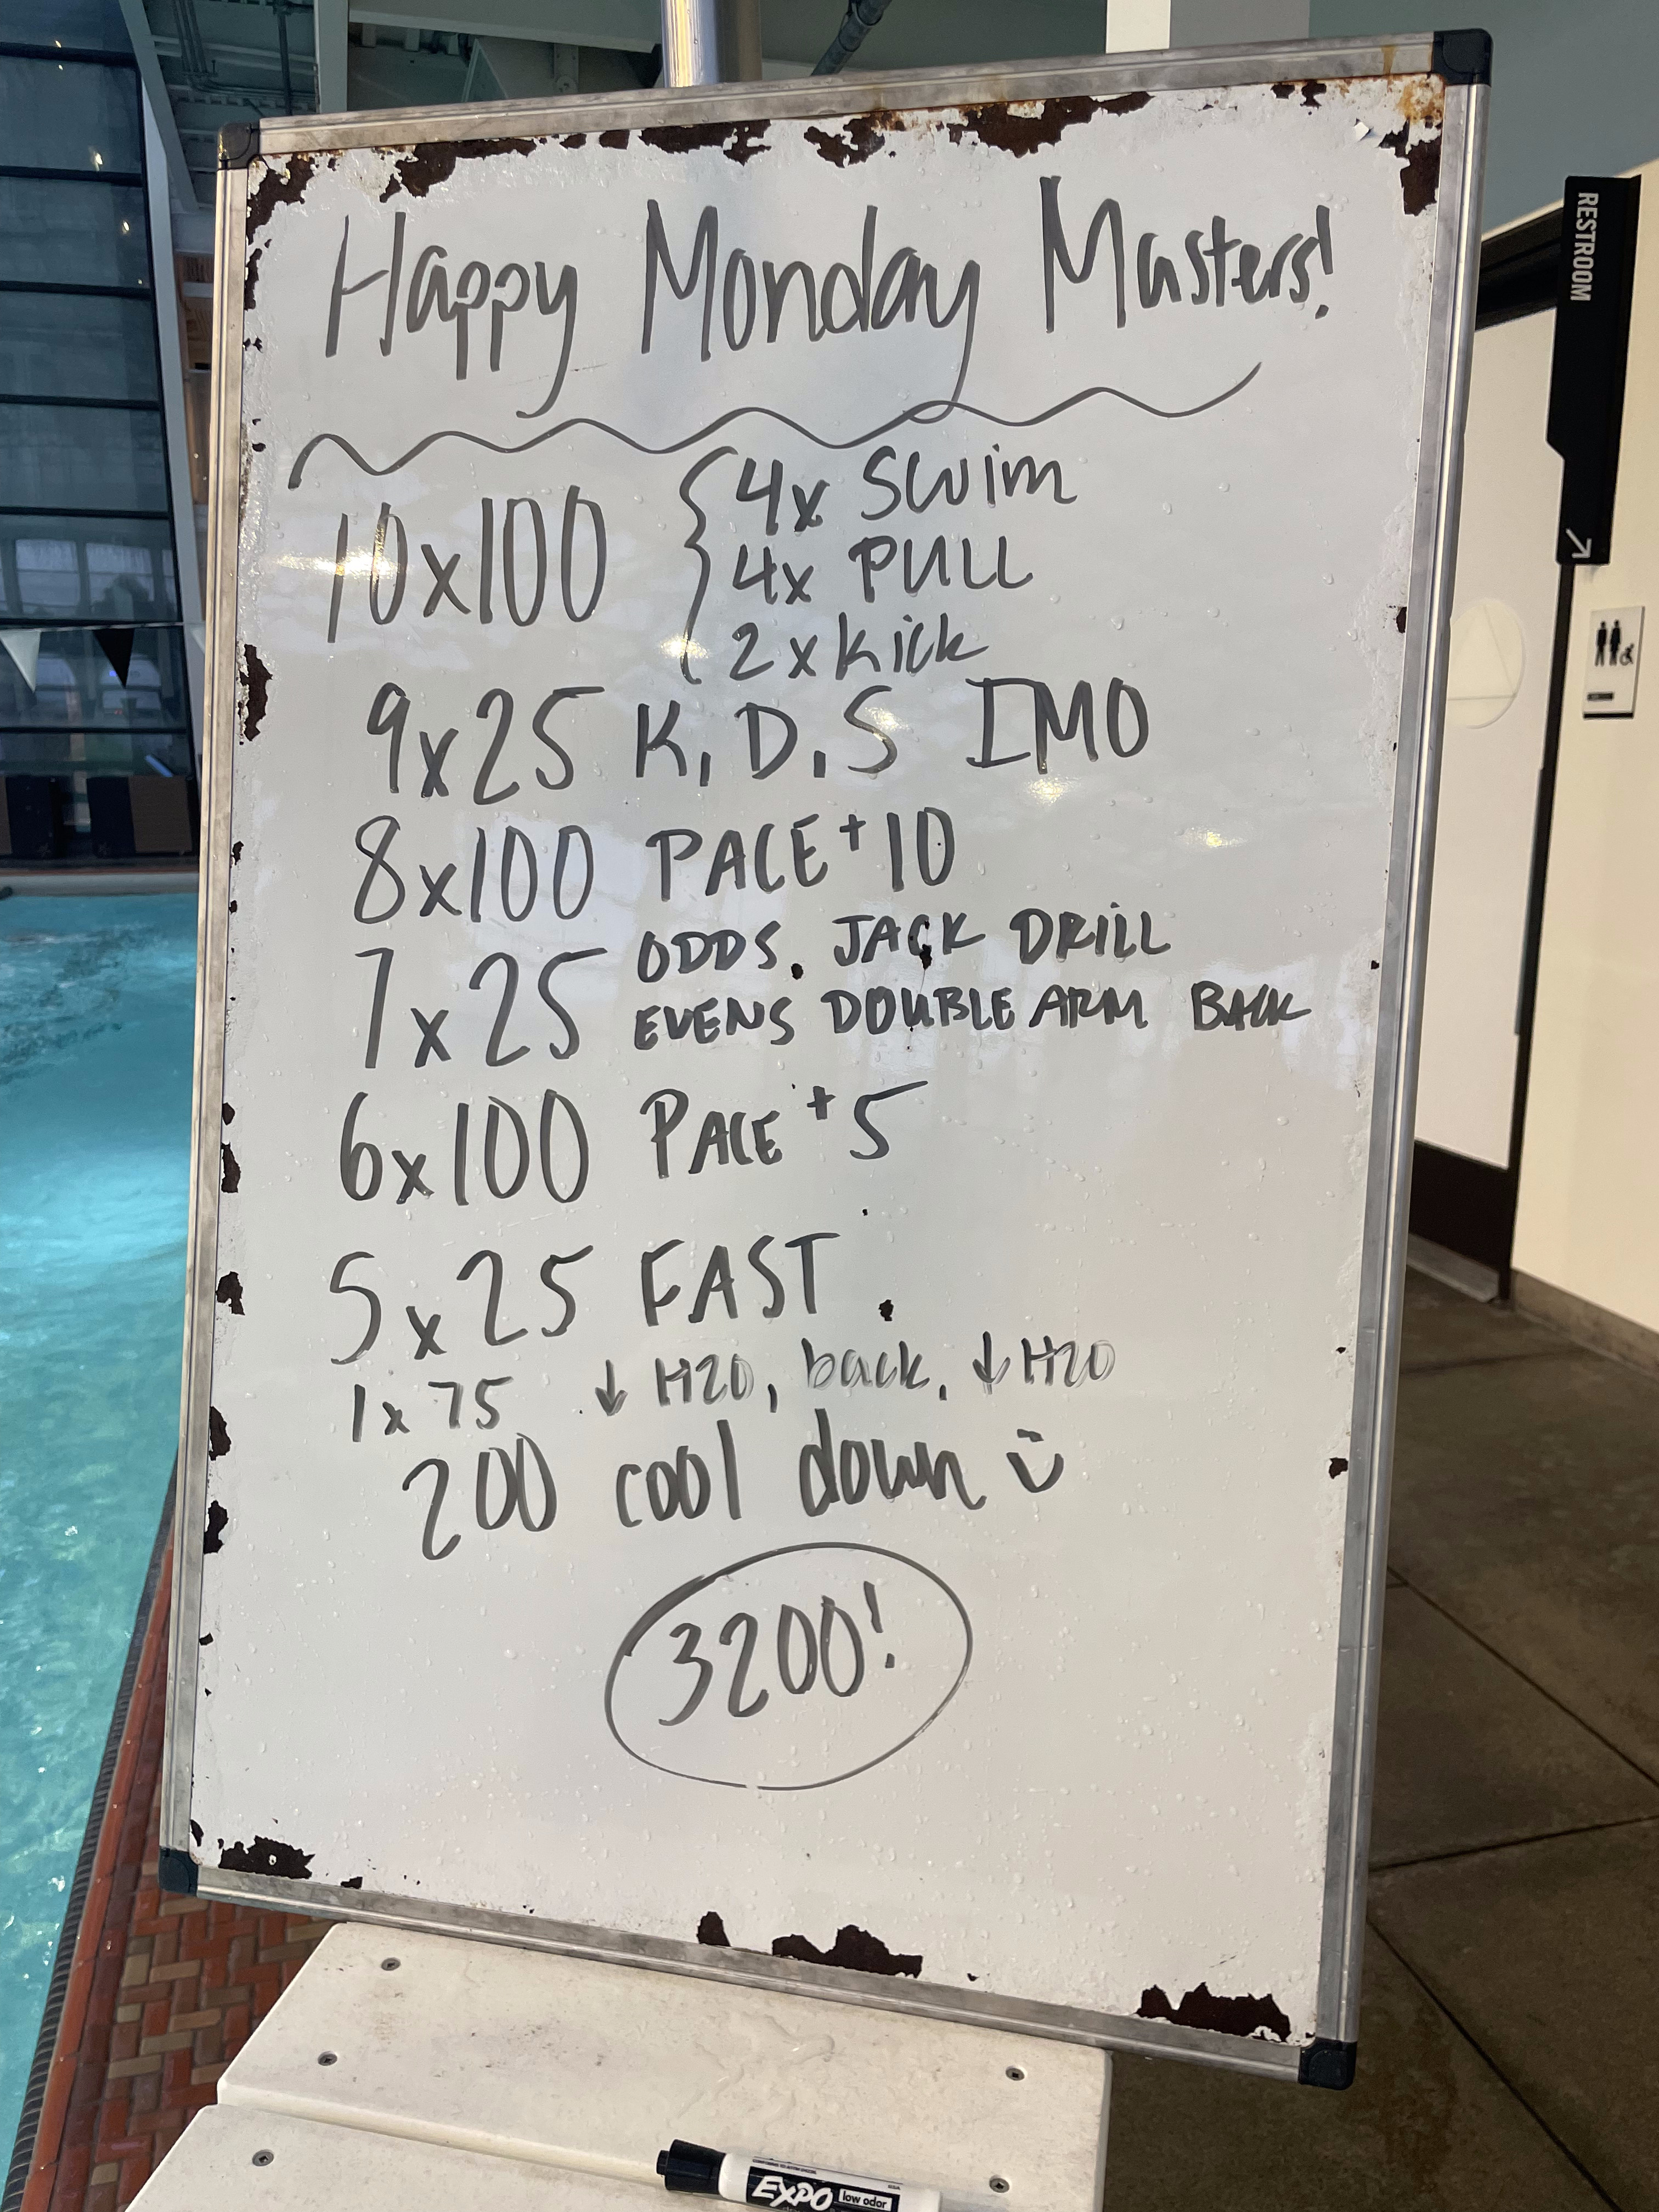 Happy Monday Masters!
10x100 { 4x Swim
4x PULL
2x Kick
9x25 K, D, S IMO
8x100 PACE+10
7x25 ODDS. JACK DRILL
EVENS DOUBLE ARM BACK
6x100 PACE +5
5x25 FAST
1x75 ↓ H20, back, ↓ H20
200 cool down :)
3200!
RESTROOM
EXPO low odor